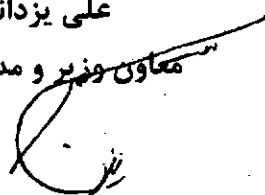 علی یزدا
معاون وزیر و مد